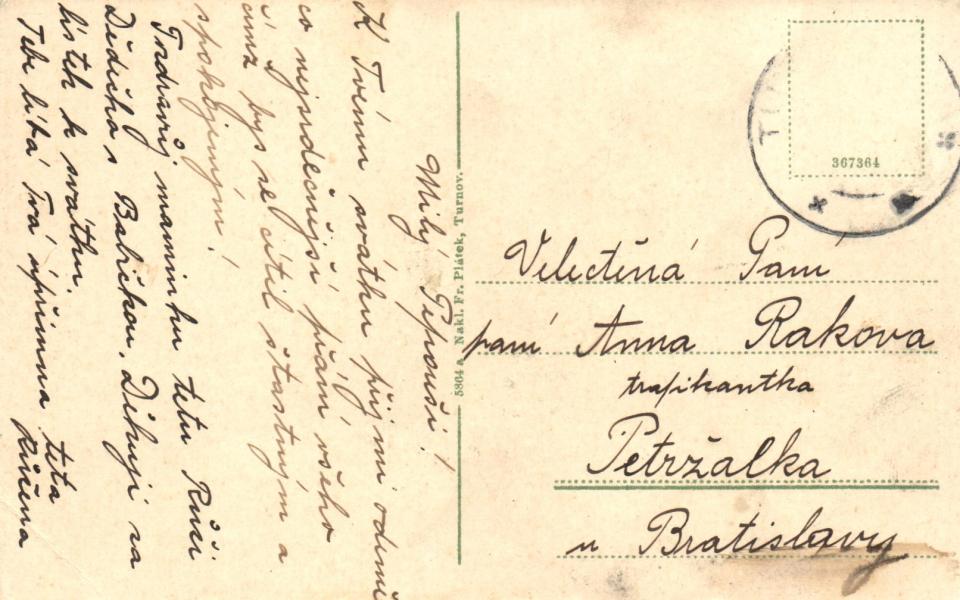 Milý Pepouši!
K Tvému svátku přijmi odemě
co nejsrdečnější přání všeho
bys se cítil šťastným a
spokojeným!
Pozdravuj maminku tetu Růži
Dědečka s Babičkou. Děkuji za
lístek k svátku.
Tebe líbá Tvá upřímná teta
Růžena
5864 a Nakl. Fr. Plátek, Turnov.
367364
Velectěná Paní
paní Anna Rakova
trafikantka
Petržalka
u Bratislavy